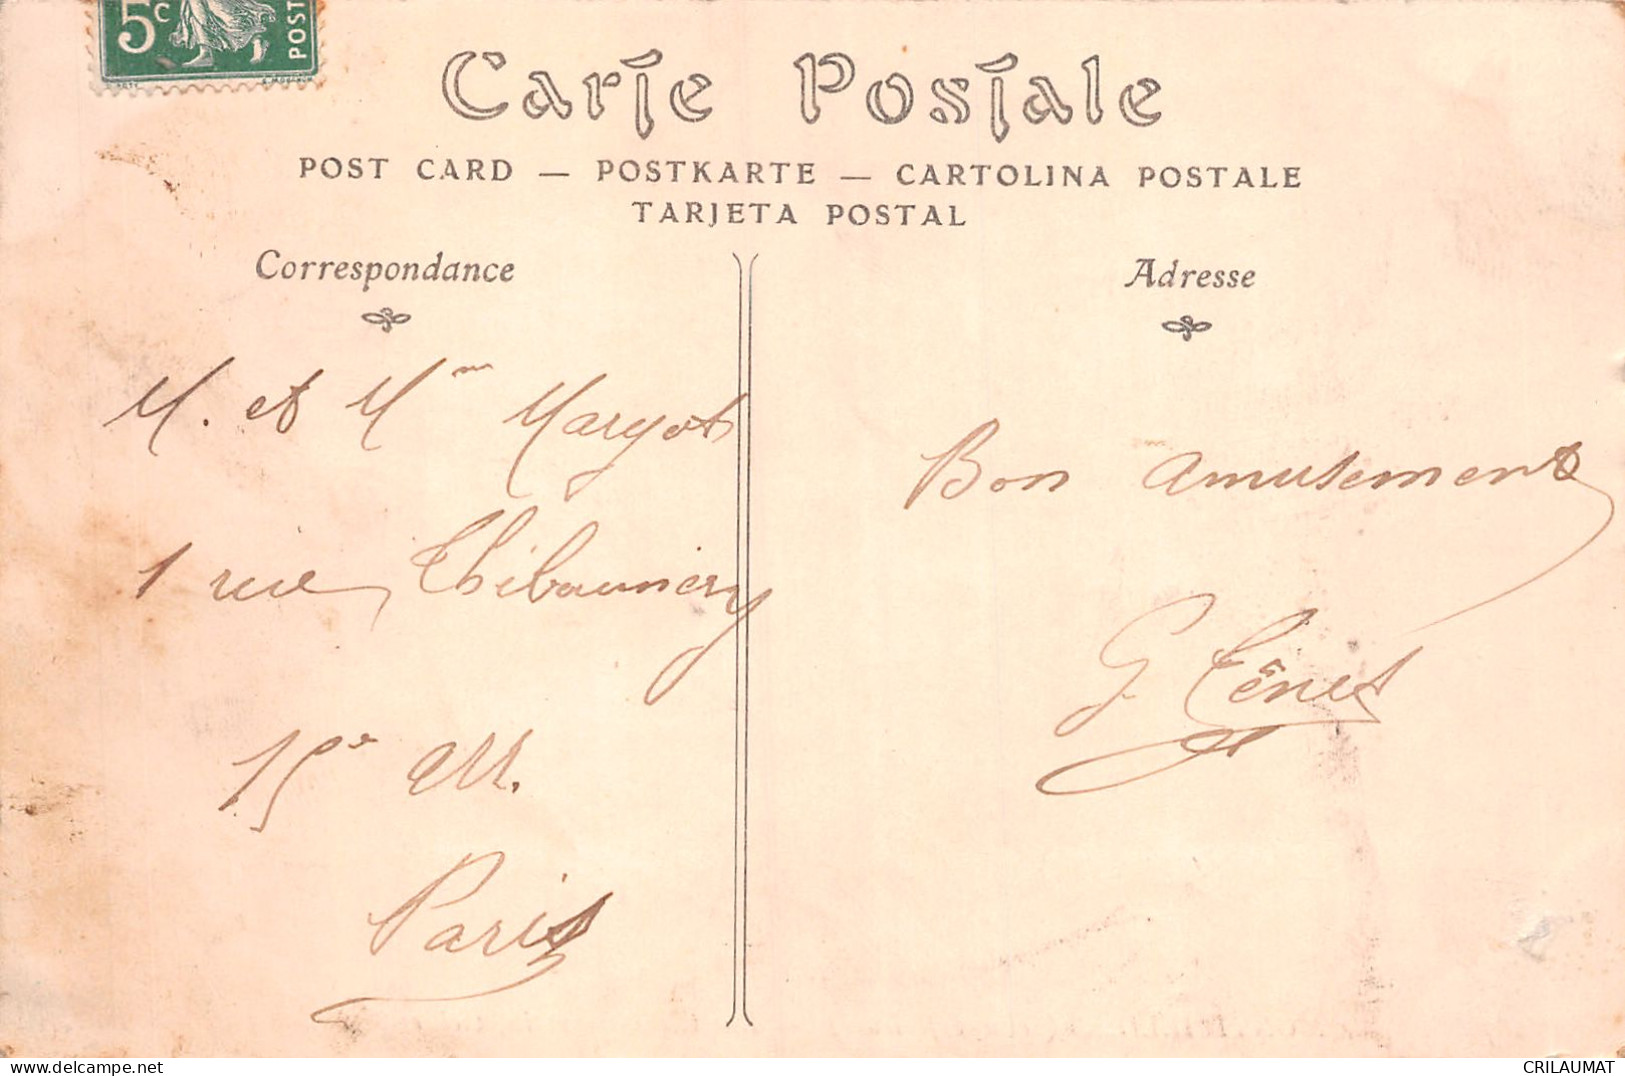 5c POST
Carte Postale
POST CARD — POSTKARTE — CARTOLINA POSTALE
TARJETA POSTAL
Correspondance
Adresse
M. et Mme Margot
1 rue Thiboumery
15e arr.
Paris
Bon amusement
G. Ténet
delcampe.net
CRILAUMAT